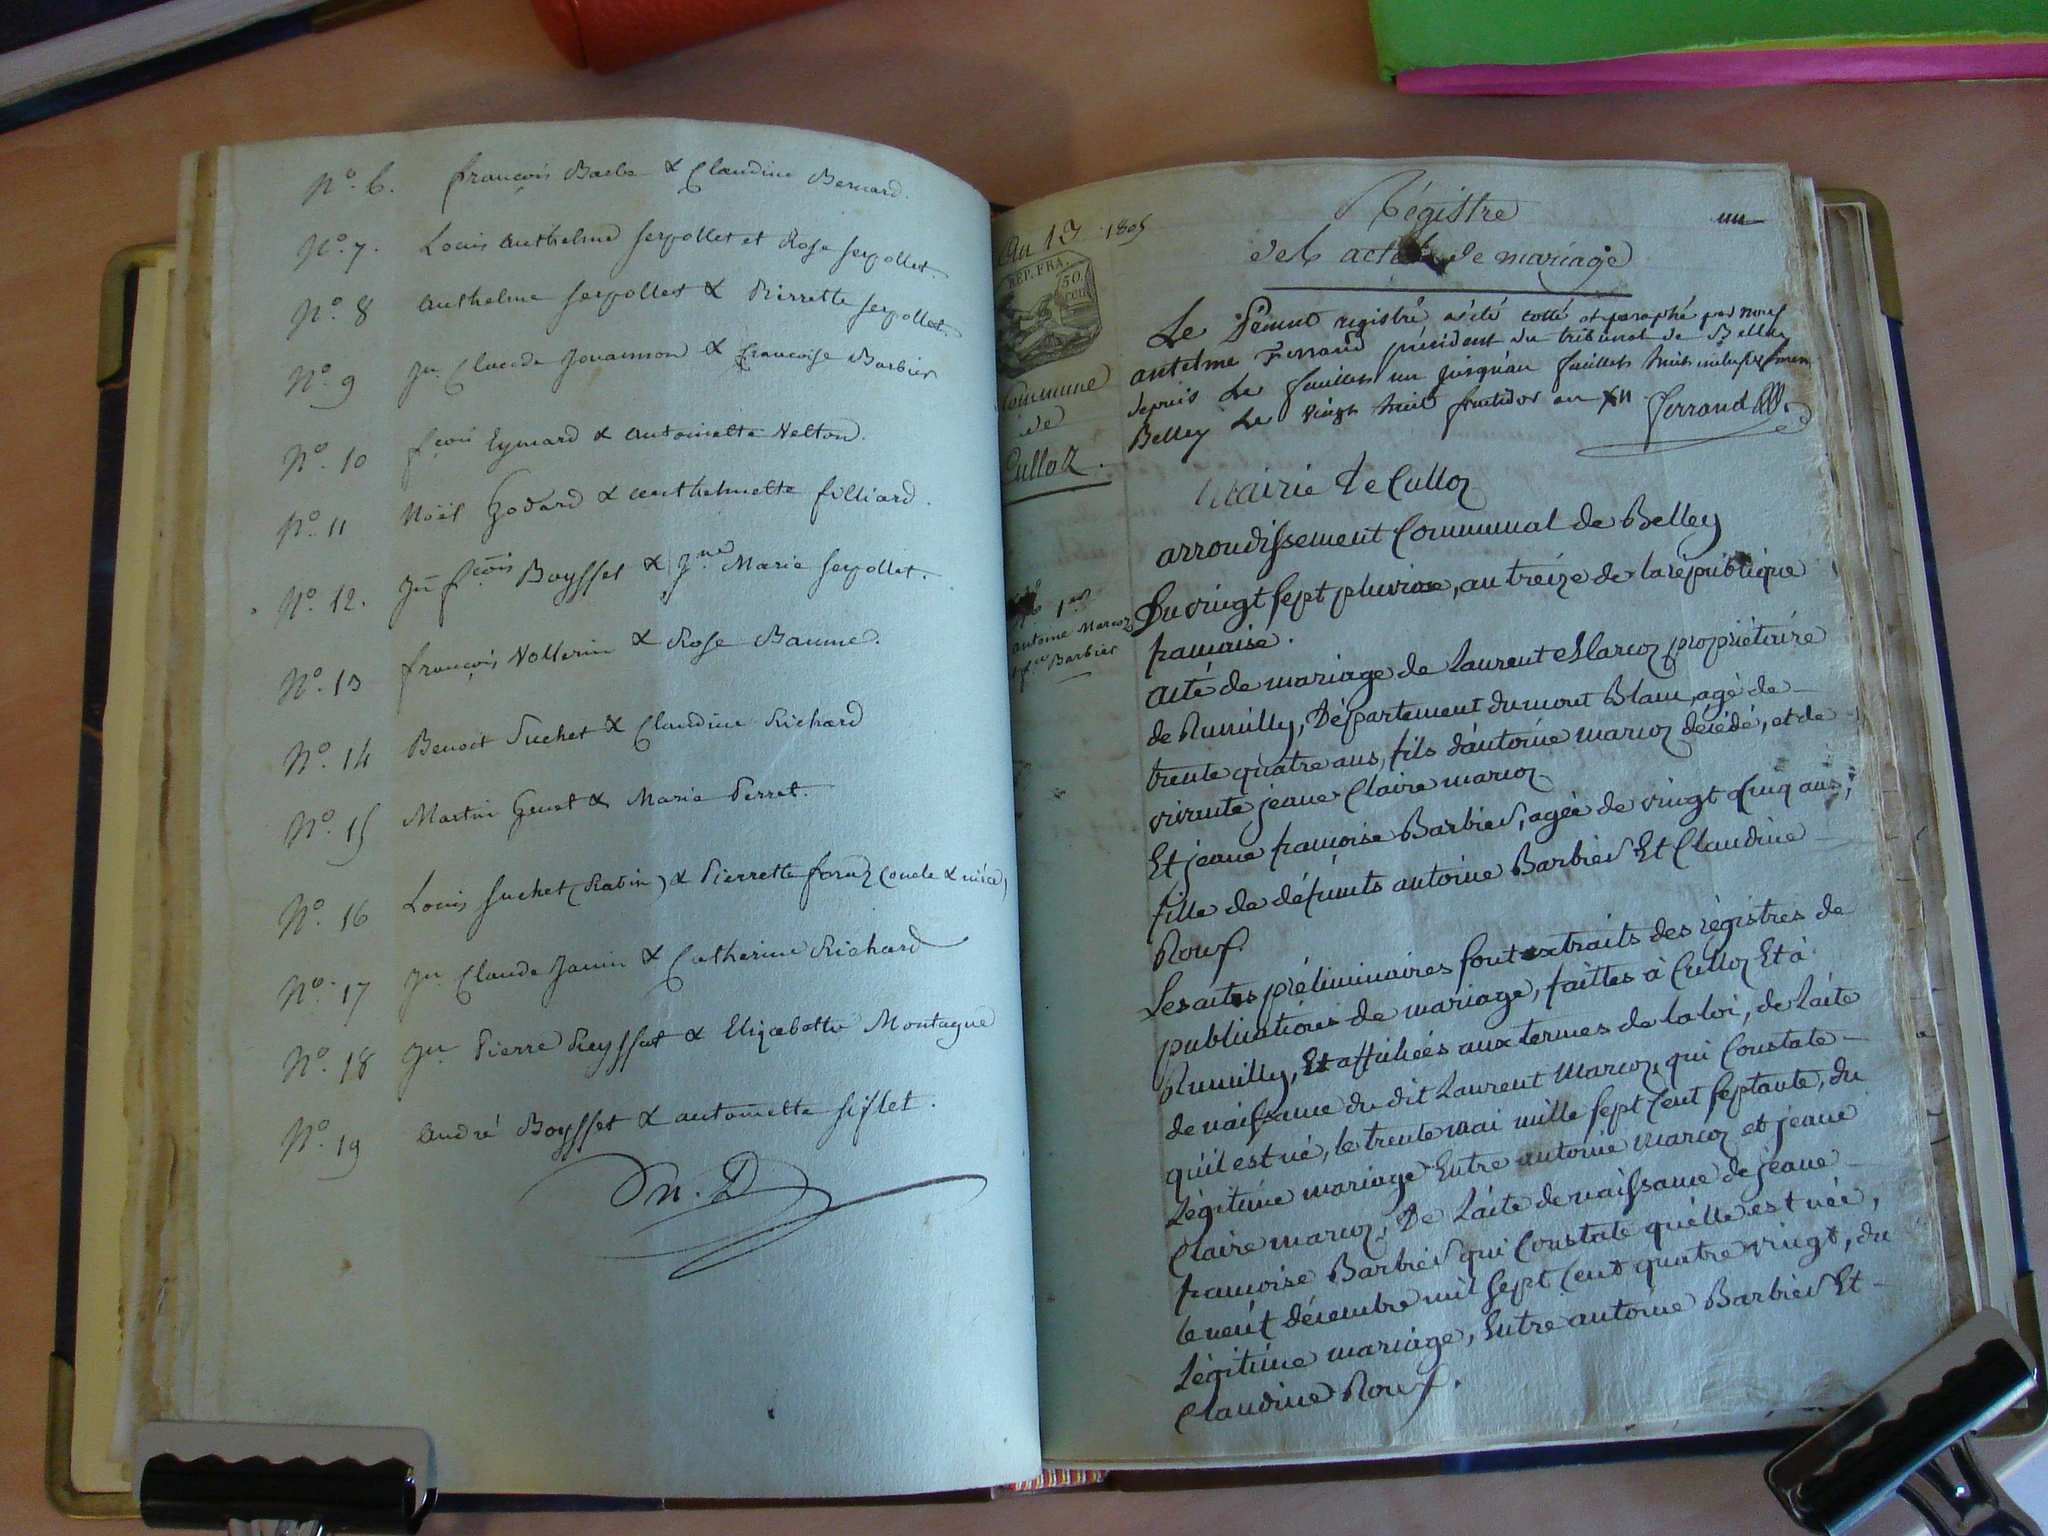 N.o 6. françois Barbe & Claudine Bernard.
N.o 7. Louis anthelme serpollet et Rose serpollet.
N.o 8 anthelme serpollet & Pierrette serpollet.
N.o 9 Jn. Claude Jouannon & françoise Barbier
N.o 10 f.çois Eymard & antoinette Velton.
N.o 11 Noël Godard & anthelmette filliard.
N.o 12. Jn f.çois Boysset & J.ne Marie serpollet.
N.o 13 françois Vollerin & Rose Baume.
N.o 14 Benoit Suchet & Claudine Richard
N.o 15 Martin Genet & Marie Perret.
N.o 16 Louis Suchet (Ratin) & Pierrette (oncle & nièce)
N.o 17 Jn. Claude Janin & Catherine Richard
N.o 18 Jn Pierre Peysset & Elizabeth Montagne
N.o 19 andré Boysset & antoinette siflet.
An 13 1805
REP. FRA.
50. cent
Commune
de
Culloz.
N.o 1.er
antoine Marcoz
et f.se Barbier
Régistre
des actes de mariage
Le Présent registre a été cotté et paraphé par nous
antelme Ferrand président du tribunal de Belley
depuis Le feuillet un jusqu'au feuillet huit inclusivement
Belley Le vingt huit fructidor an XII ferrand
Mairie de Culloz
arrondissement Communal de Belley
Du vingt sept pluviose, an treize de la république
francoise.
acte de mariage de Laurent Marcoz propriétaire
de Rumilly, Département du mont Blanc, agé de
trente quatre ans, fils d'antoine marcoz décédé, et de
vivante jeane Claire marcoz
Et jeane francoise Barbier, agée de vingt cinq ans,
fille de défunts antoine Barbier Et Claudine
Rouf.
Les actes préliminaires sont extraits des régistres de
publications de mariage, faittes à Culloz Et à
Rumilly, Et affichées aux termes de la loi, de l'acte
de naissance du dit Laurent Marcoz, qui Constate
qu'il est né, le trente mai mille sept Cent septante, du
Légitime mariage Entre antoine marcoz et jeane
Claire marcoz, De L'acte de naissance de jeane
francoise Barbier qui Constate qu'elle est née,
le neuf décembre mil sept Cent quatre vingt, du
Légitime mariage, Entre antoine Barbier Et
Claudine Rouf.